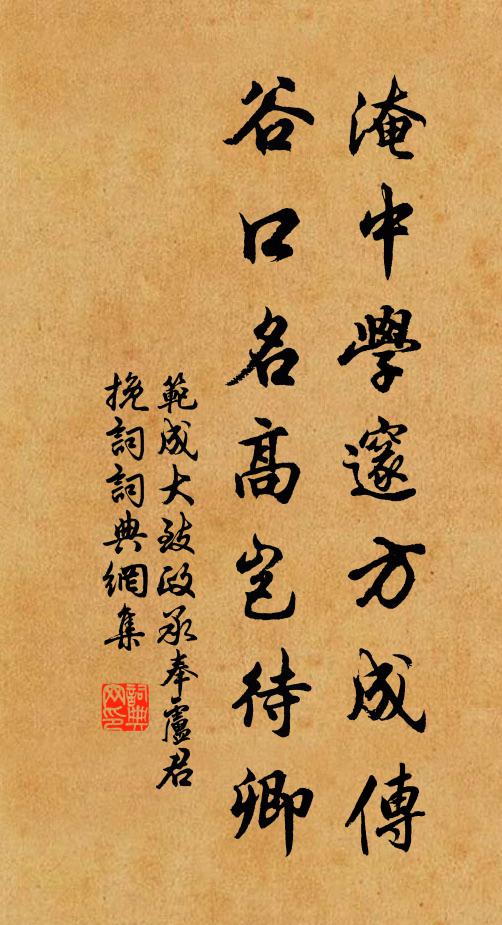 淹中學邃方成傳
谷口名高豈待卿
範成大致政承奉盧君
挽詞詞典網集
詞典網印